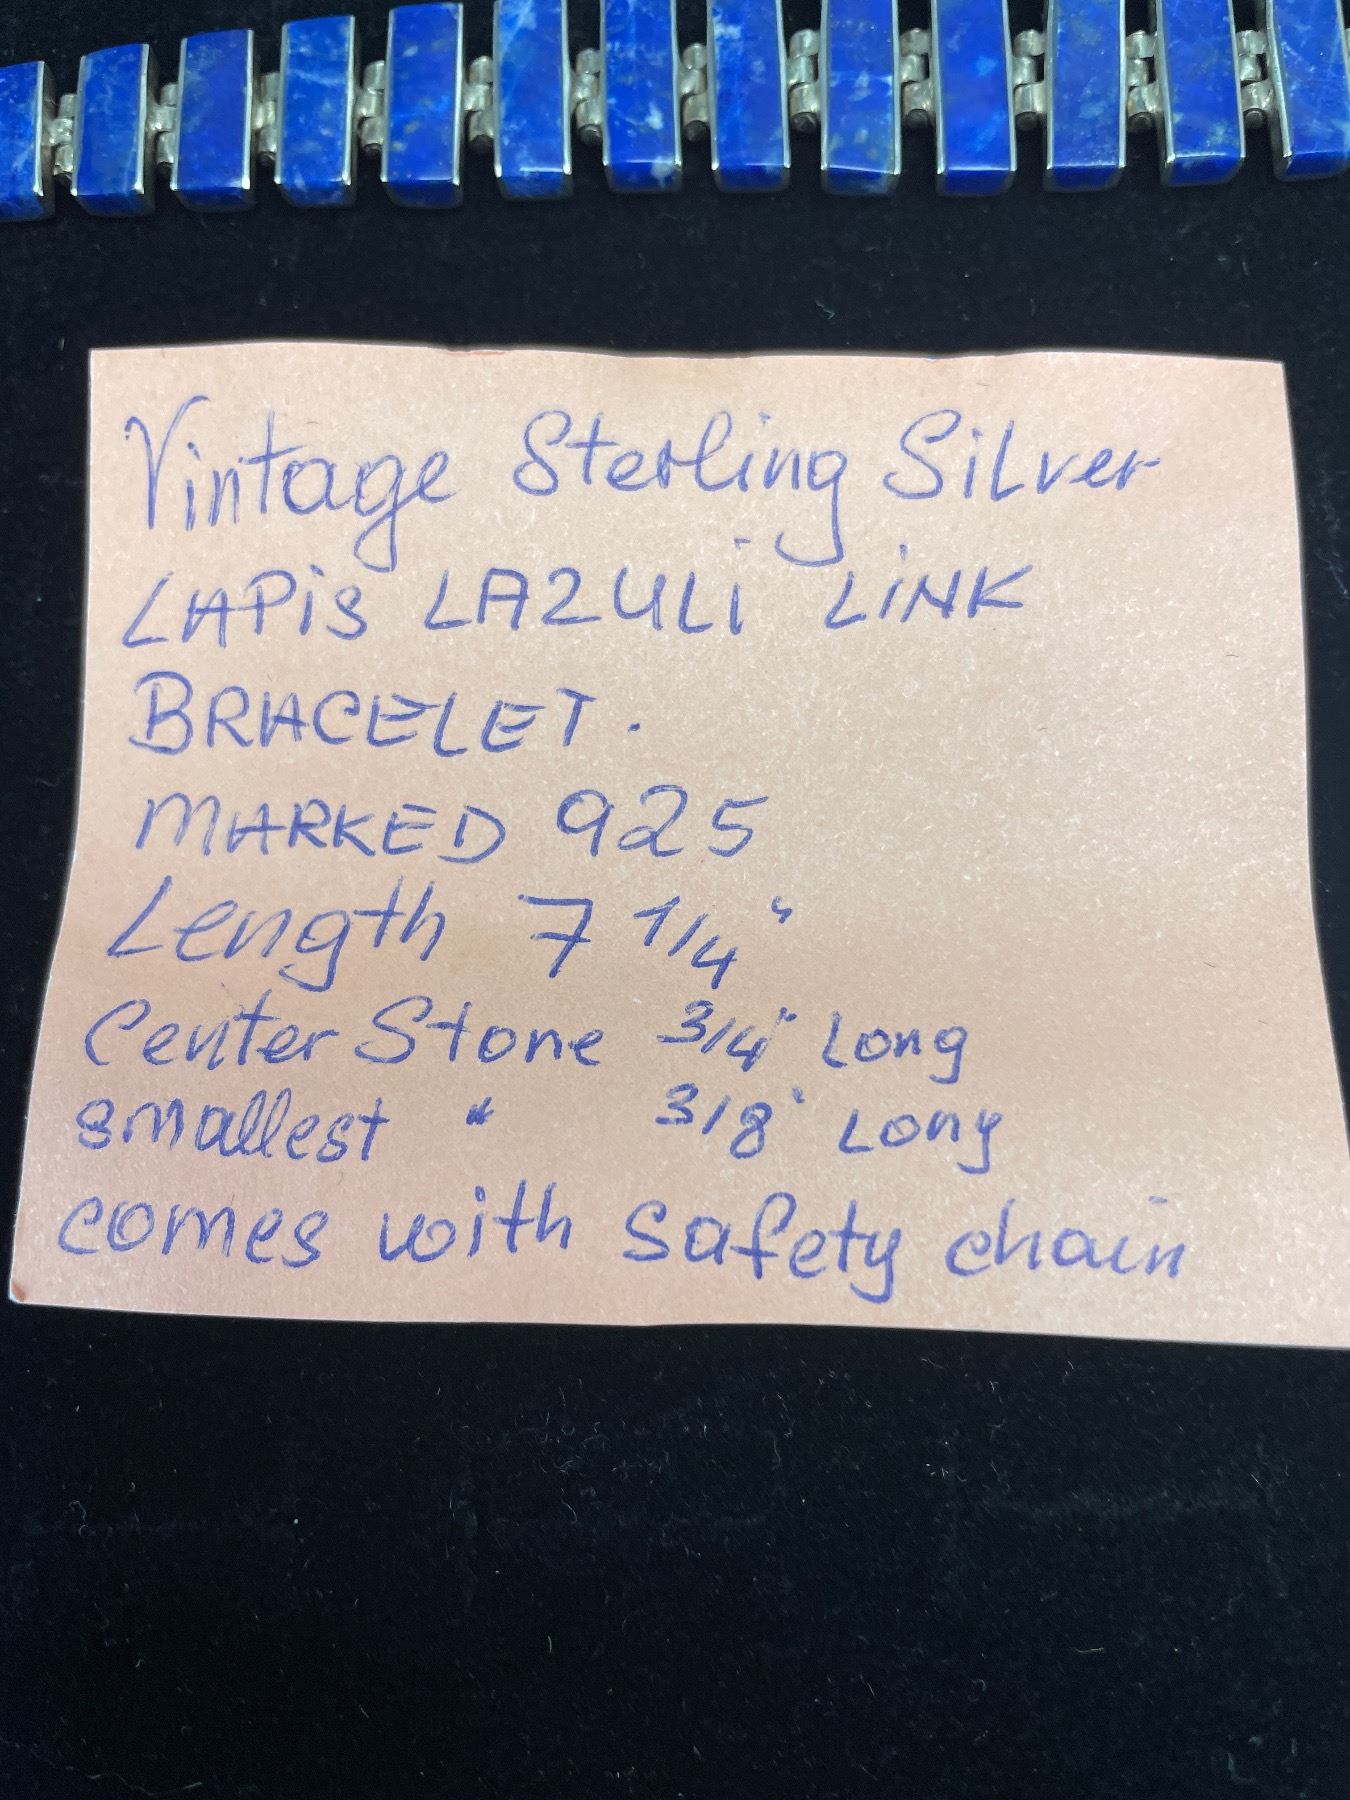 Vintage Sterling Silver
LAPiS LAZULi LiNK
BRACELET.
MARKED 925
Length 7 1/4"
Center Stone 3/4" Long
smallest " 3/8" Long
comes with safety chain